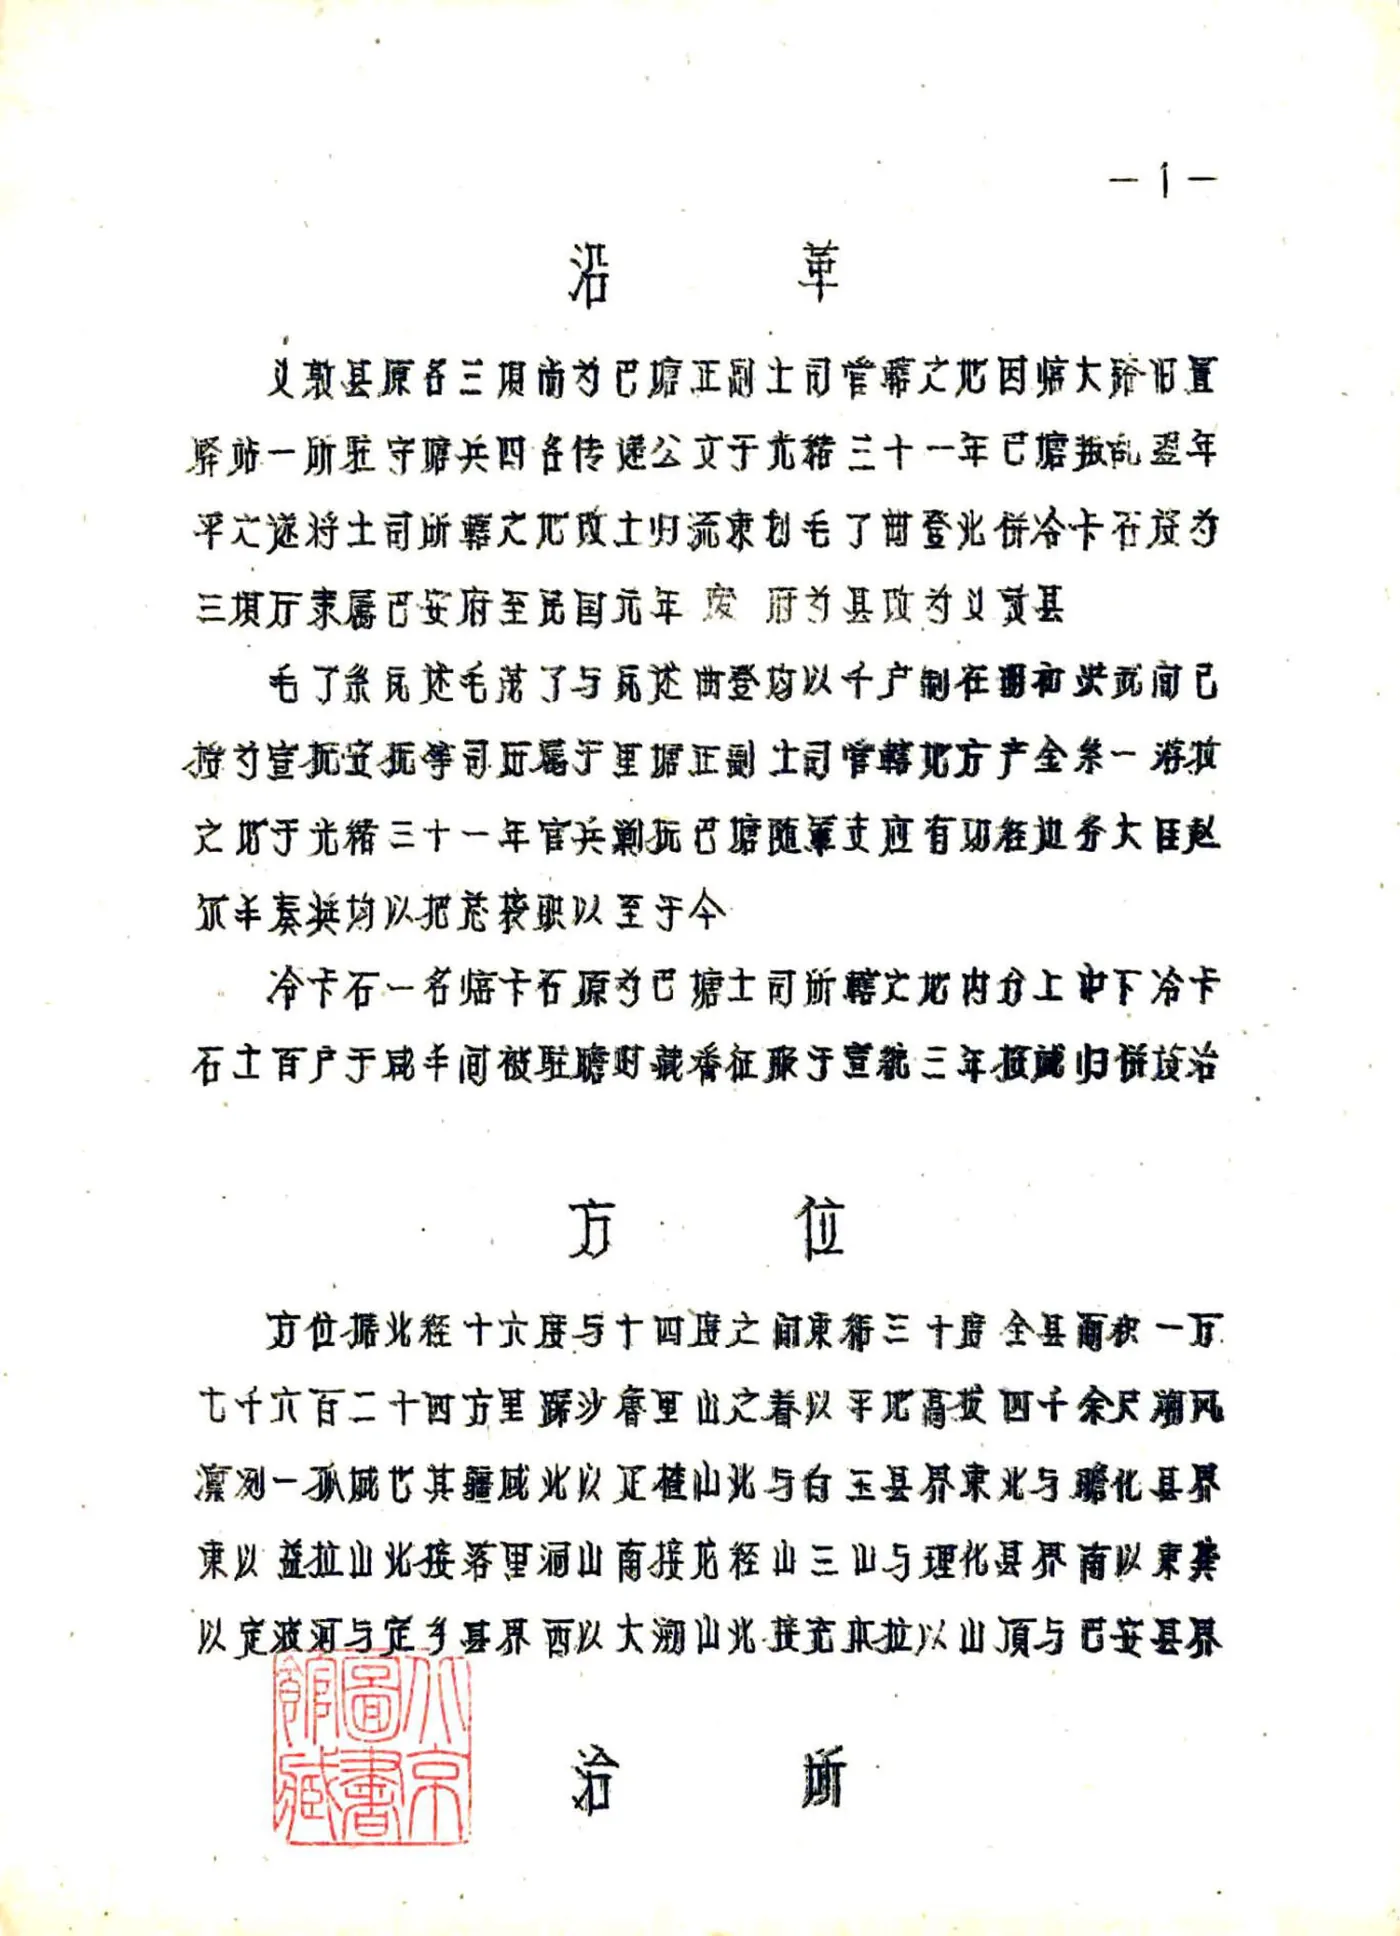 -1-
沿 革
义敦县原名三坝尚为巴塘正副土司管辖之地因临大路旧置
驿站一所驻守塘兵四名传递公文于光绪三十一年巴塘叛乱翌年
平之遂将土司所辖之地改土归流東划毛了曲登北併冷卡石族为
三坝厅隶属巴安府至民国元年废府为县改为义敦县
毛了系瓦述毛茂了与瓦述曲登均以千户制在明初洪武间已
授为宣抚安抚等司所属于里塘正副土司管辖地方产全系一游牧
之地于光绪三十一年官兵剿抚巴塘随军支应有功经边务大臣赵
尔丰奏奖均以把总接职以至于今
冷卡石一名临卡石原为巴塘土司所辖之地内分上中下冷卡
石土百户于咸丰间被驻瞻时藏番征服于宣统三年投诚归併族治
方 位
方位据北经十六度与十四度之间東纬三十度全县面积一万
七千六百二十四方里踞沙鲁里山之脊以平地高拔四千余尺潮风
凛冽一孤城也其疆域北以足楂山北与白玉县界東北与瞻化县界
東以益拉山北接洛里洞山南接龙径山三山与理化县界南以東龚
以定波河与定乡县界西以大溯山北接充本拉以山頂与巴安县界
治 所
北京
圖書
館藏